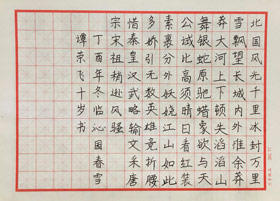 北国风光千里冰封万里
雪飘望长城内外惟余莽
莽大河上下顿失滔滔山
舞银蛇原驰蜡象欲与天
公试比高须晴日看红装
素裹分外妖娆江山如此
多娇引无数英雄竞折腰
惜秦皇汉武略输文采唐
宗宋祖稍逊风骚
丁酉年冬临沁园春雪
谭京飞十岁书